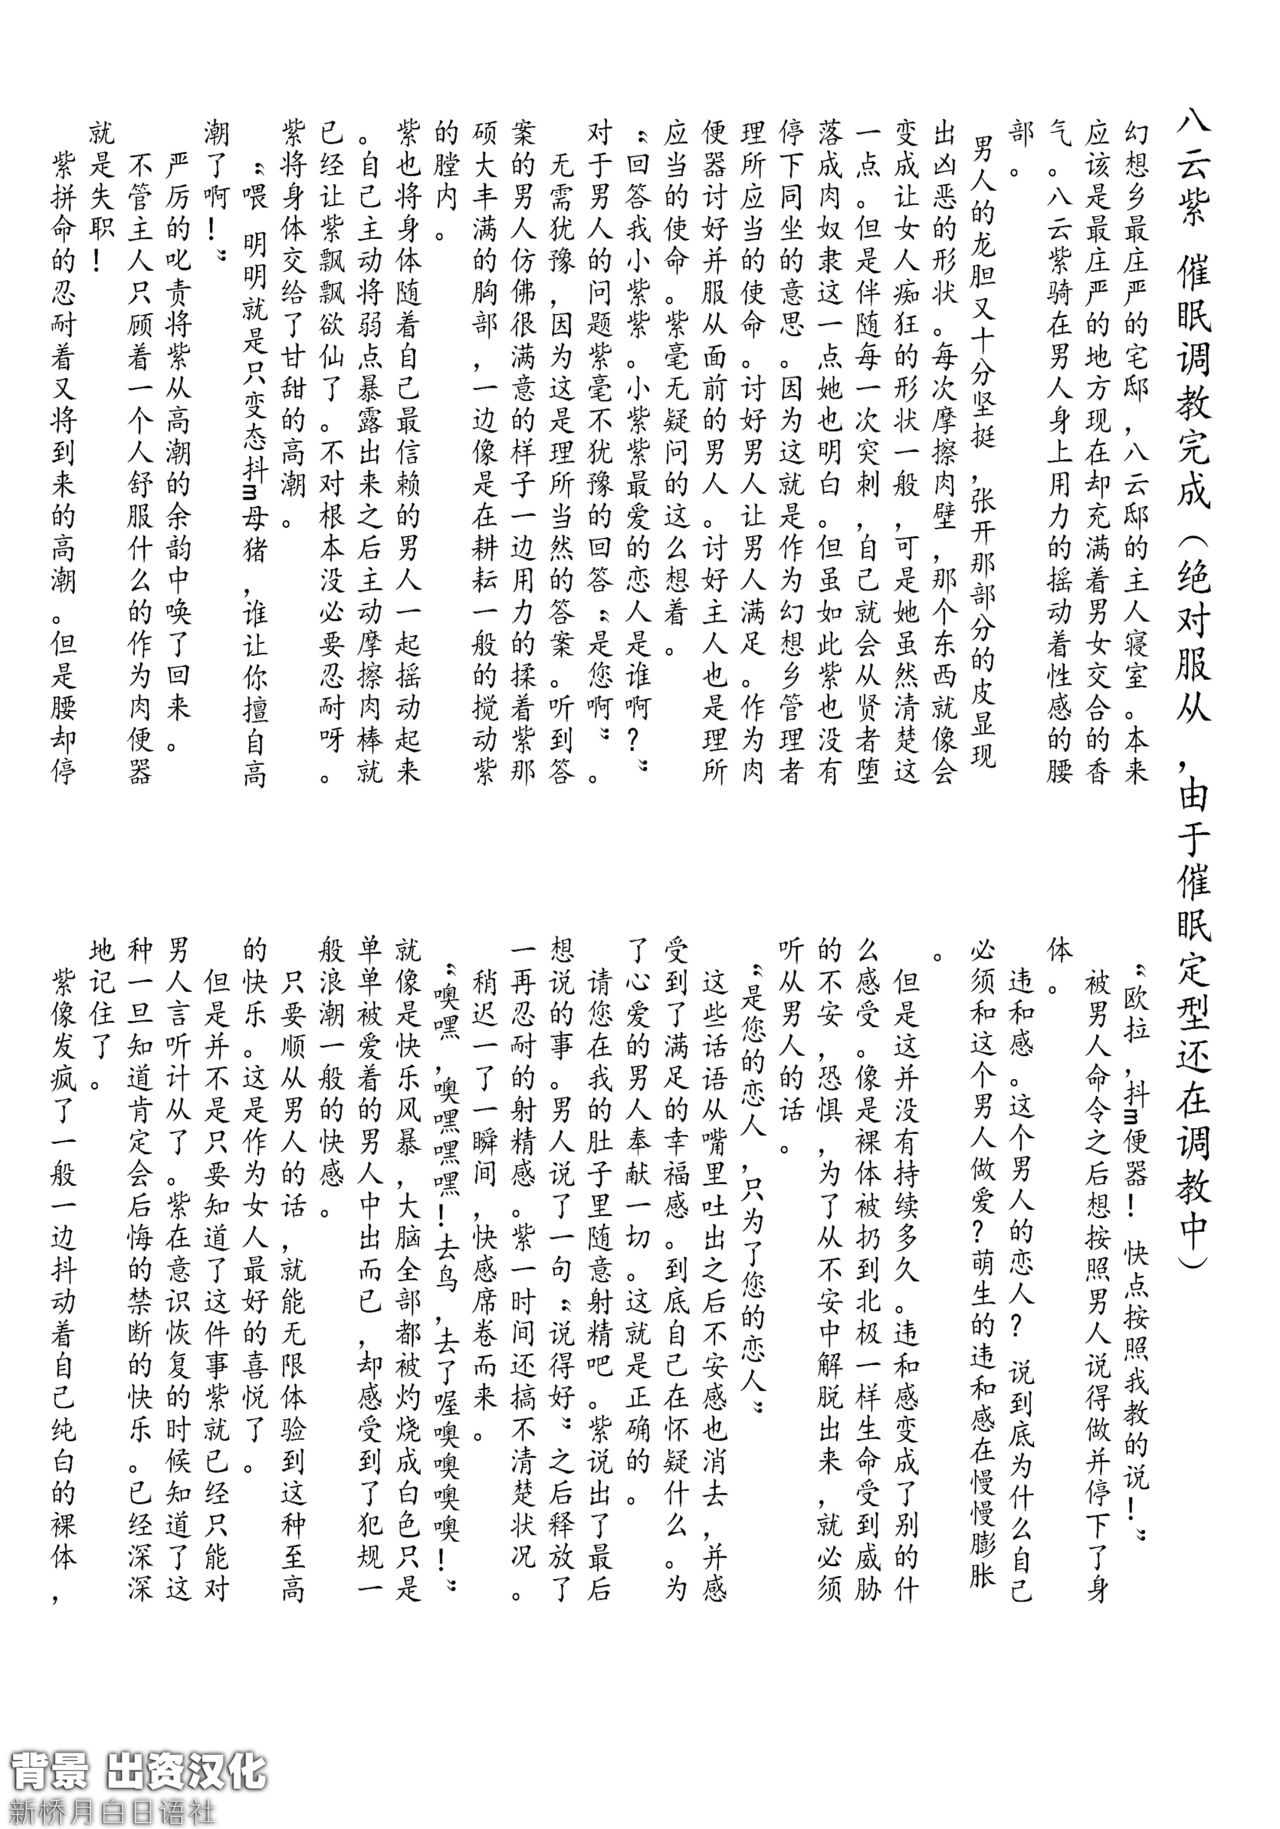 八云紫 催眠调教完成（绝对服从，由于催眠定型还在调教中）
幻想乡最庄严的宅邸，八云邸的主人寝室。本来
应该是最庄严的地方现在却充满着男女交合的香
气。八云紫骑在男人身上用力的摇动着性感的腰
部。
男人的龙胆又十分坚挺，张开那部分的皮显现
出凶恶的形状。每次摩擦肉壁，那个东西就像会
变成让女人痴狂的形状一般，可是她虽然清楚这
一点。但是伴随每一次突刺，自己就会从贤者堕
落成肉奴隶这一点她也明白。但虽如此紫也没有
停下同坐的意思。因为这就是作为幻想乡管理者
理所应当的使命。讨好男人让男人满足。作为肉
便器讨好并服从面前的男人。讨好主人也是理所
应当的使命。紫毫无疑问的这么想着。
“回答我小紫紫。小紫紫最爱的恋人是谁啊？”
对于男人的问题紫毫不犹豫的回答“是您啊”。
无需犹豫，因为这是理所当然的答案。听到答
案的男人仿佛很满意的样子一边用力的揉着紫那
硕大丰满的胸部，一边像是在耕耘一般的搅动紫
的膛内。
紫也将身体随着自己最信赖的男人一起摇动起来
。自己主动将弱点暴露出来之后主动摩擦肉棒就
已经让紫飘飘欲仙了。不对根本没必要忍耐呀。
紫将身体交给了甘甜的高潮。
“喂 明明就是只变态抖m母猪，谁让你擅自高
潮了啊！”
严厉的叱责将紫从高潮的余韵中唤了回来。
不管主人只顾着一个人舒服什么的作为肉便器
就是失职！
紫拼命的忍耐着又将到来的高潮。但是腰却停
“欧拉，抖m便器！ 快点按照我教的说！”
被男人命令之后想按照男人说得做并停下了身
体。
违和感。这个男人的恋人？ 说到底为什么自己
必须和这个男人做爱？萌生的违和感在慢慢膨胀
。
但是这并没有持续多久。违和感变成了别的什
么感受。像是裸体被扔到北极一样生命受到威胁
的不安，恐惧，为了从不安中解脱出来，就必须
听从男人的话。
“是您的恋人，只为了您的恋人”
这些话语从嘴里吐出之后不安感也消去，并感
受到了满足的幸福感。到底自己在怀疑什么。为
了心爱的男人奉献一切。这就是正确的。
请您在我的肚子里随意射精吧。紫说出了最后
想说的事。男人说了一句“说得好”之后释放了
一再忍耐的射精感。紫一时间还搞不清楚状况。
稍迟一了一瞬间，快感席卷而来。
“噢嘿，噢嘿嘿嘿！去鸟，去了喔噢噢噢噢！”
就像是快乐风暴，大脑全部都被灼烧成白色只是
单单被爱着的男人中出而已，却感受到了犯规一
般浪潮一般的快感。
只要顺从男人的话，就能无限体验到这种至高
的快乐。这是作为女人最好的喜悦了。
但是并不是只要知道了这件事紫就已经只能对
男人言听计从了。紫在意识恢复的时候知道了这
种一旦知道肯定会后悔的禁断的快乐。已经深深
地记住了。
紫像发疯了一般一边抖动着自己纯白的裸体，
背景 出资汉化
新桥月白日语社